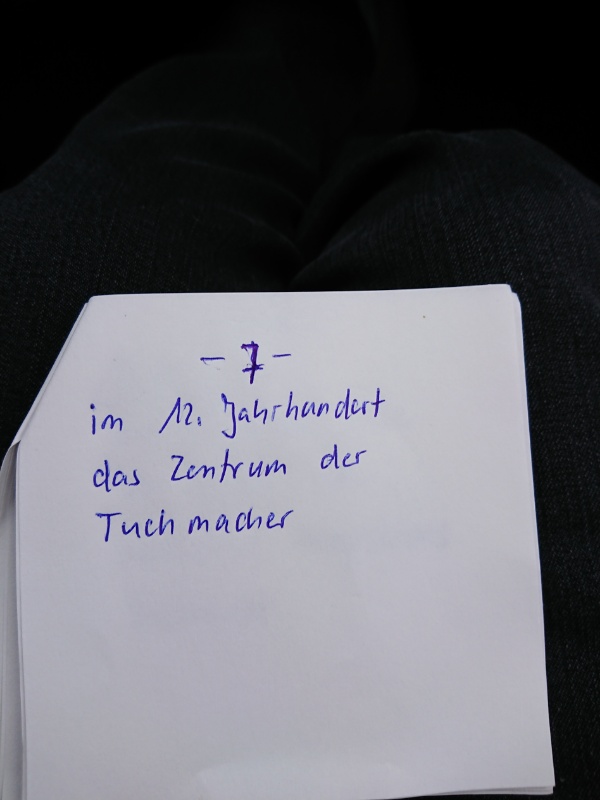 - 7 -
im 12. Jahrhundert
das Zentrum der
Tuchmacher